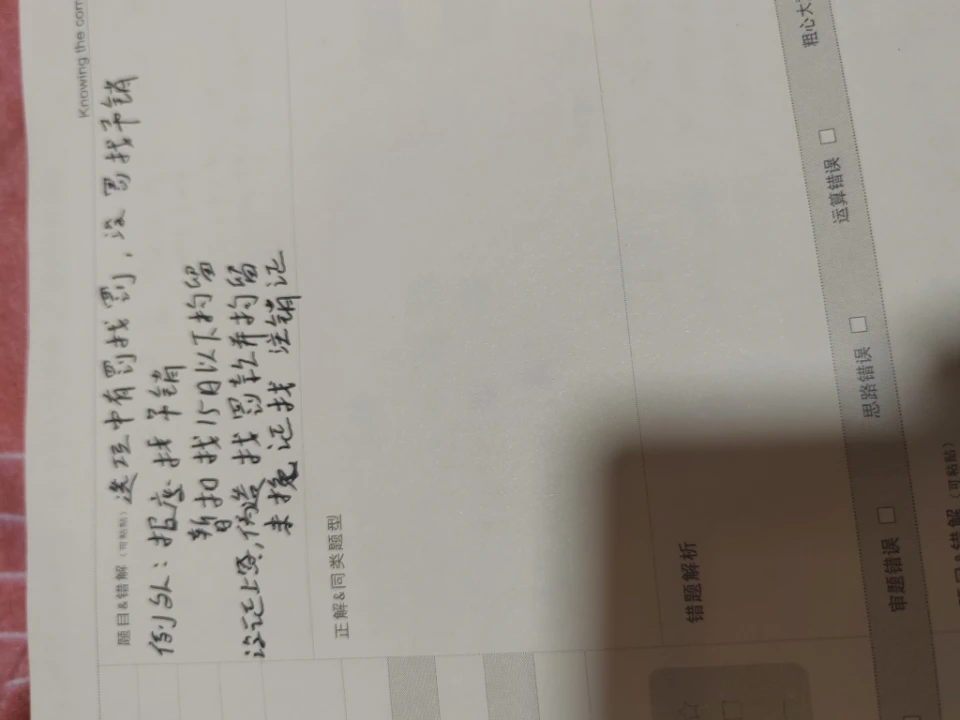 Knowing the com
题目&错解（可粘贴） 选项中有罚找罚，没罚找吊销
例外：报废找吊销
暂扣找15日以下拘留
没证上 ，伪造 找罚款并拘留
证找 注销证
正解&同类题型
错题解析
审题错误 思路错误 运算错误 粗心大
目&错解（可粘贴）